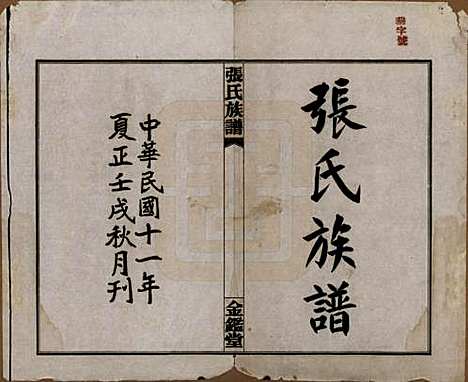 字號
張氏族譜
張氏族譜
金鑑堂
中華民國十一年
夏正壬戌秋月刊